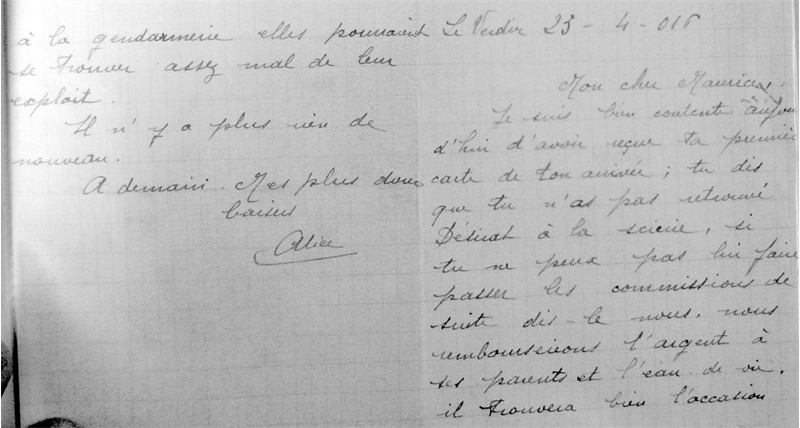 à la gendarmerie elles pourraient
se trouver assez mal de leur
exploit.
Il n'y a plus rien de
nouveau.
A demain. Mes plus doux
baisers
Alice
Le Verdier 25 - 4 - 01
Mon cher Maurice,
Je suis bien contente aujour
d'hui d'avoir reçue ta première
carte de ton arrivée ; tu dis
que tu n'as pas retrouvé
Désirat à la scierie, si
tu ne peux pas lui faire
passer les commissions de
suite dis-le nous. nous
rembourserons l'argent à
ses parents et l'eau de vie.
il trouvera bien l'occasion